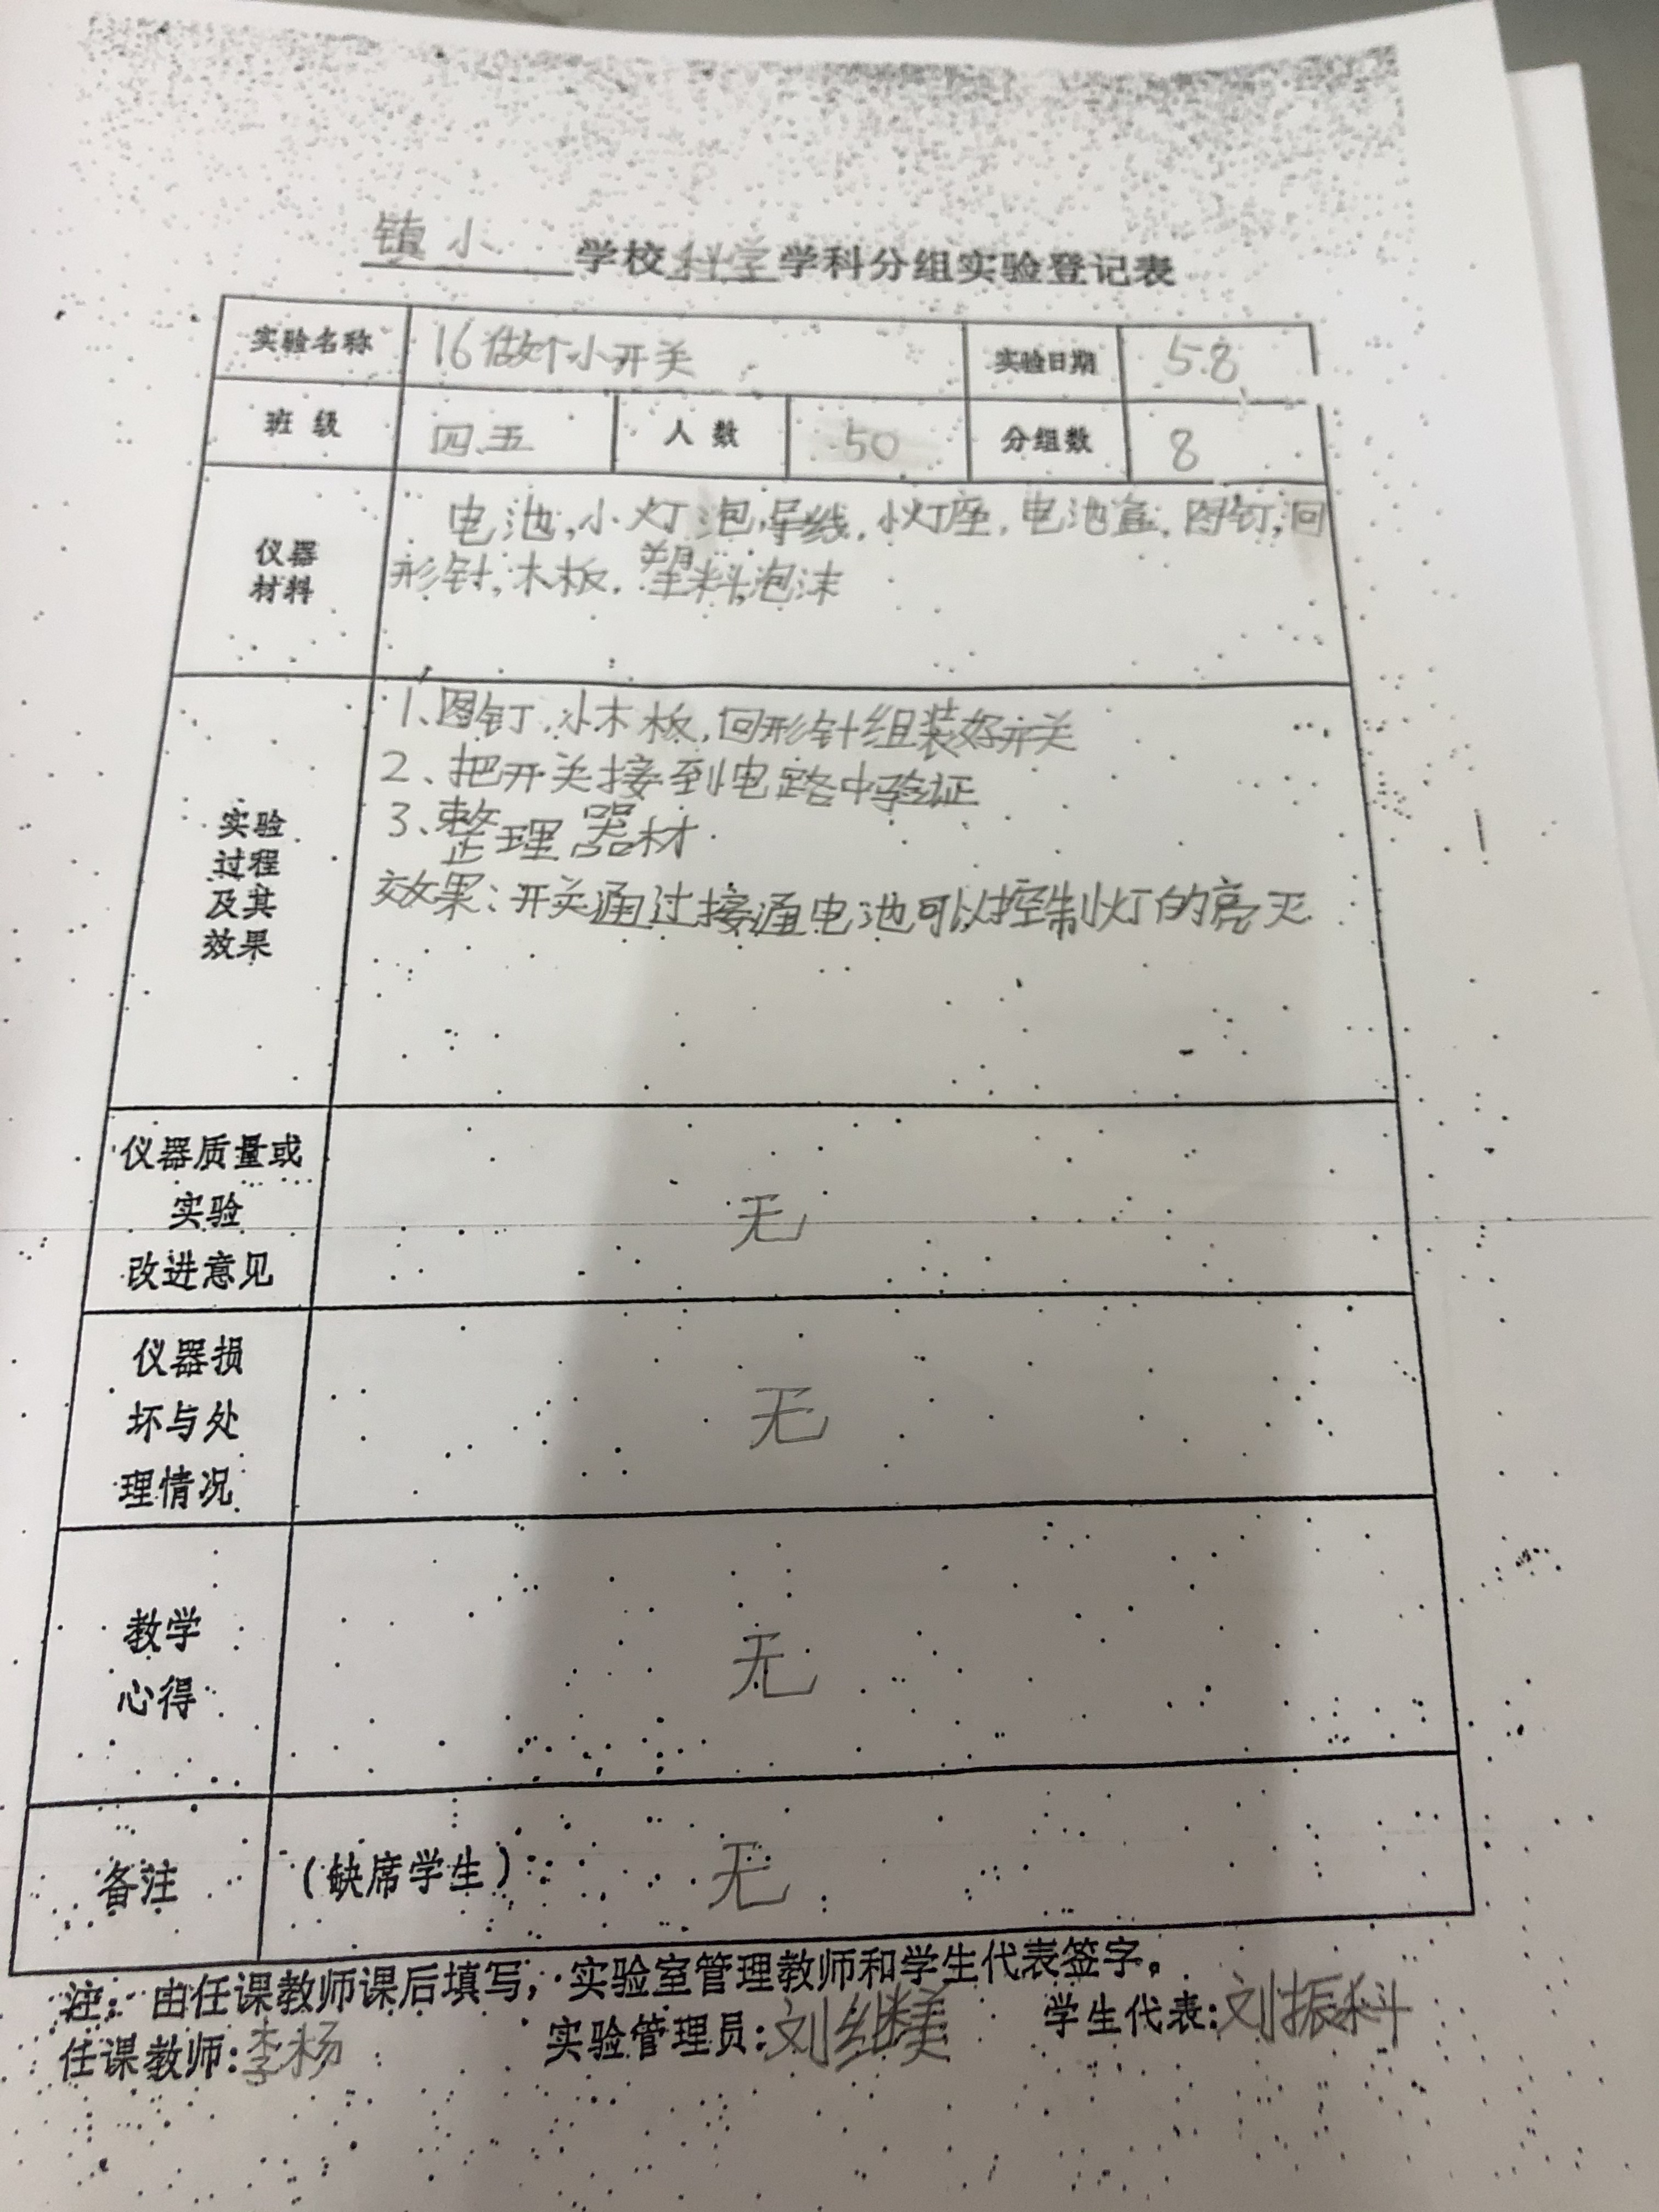 镇小学校科学学科分组实验登记表
实验名称 16做个小开关 实验日期 5.8
班级 四.五 人数 50 分组数 8
仪器材料 电池,小灯泡,导线,小灯座,电池盒,图钉,回
形针,木板,塑料泡沫
实验过程及其效果
1、图钉,小木板,回形针组装好开关
2、把开关接到电路中验证
3、整理器材.
效果:开关通过接通电池可以控制灯的亮灭
仪器质量或实验改进意见 无
仪器损坏与处理情况 无
教学心得 无
备注 (缺席学生) 无
注:由任课教师课后填写,实验室管理教师和学生代表签字。
任课教师:李杨 实验管理员:刘继美 学生代表:刘振科